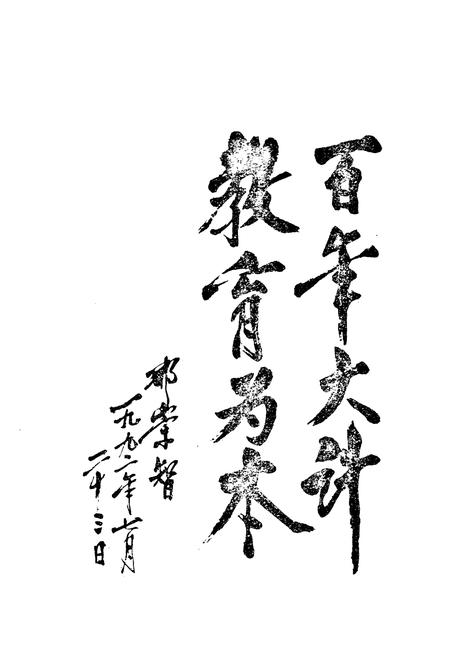 百年大计
教育为本
崇智
一九九二年七月
二十三日